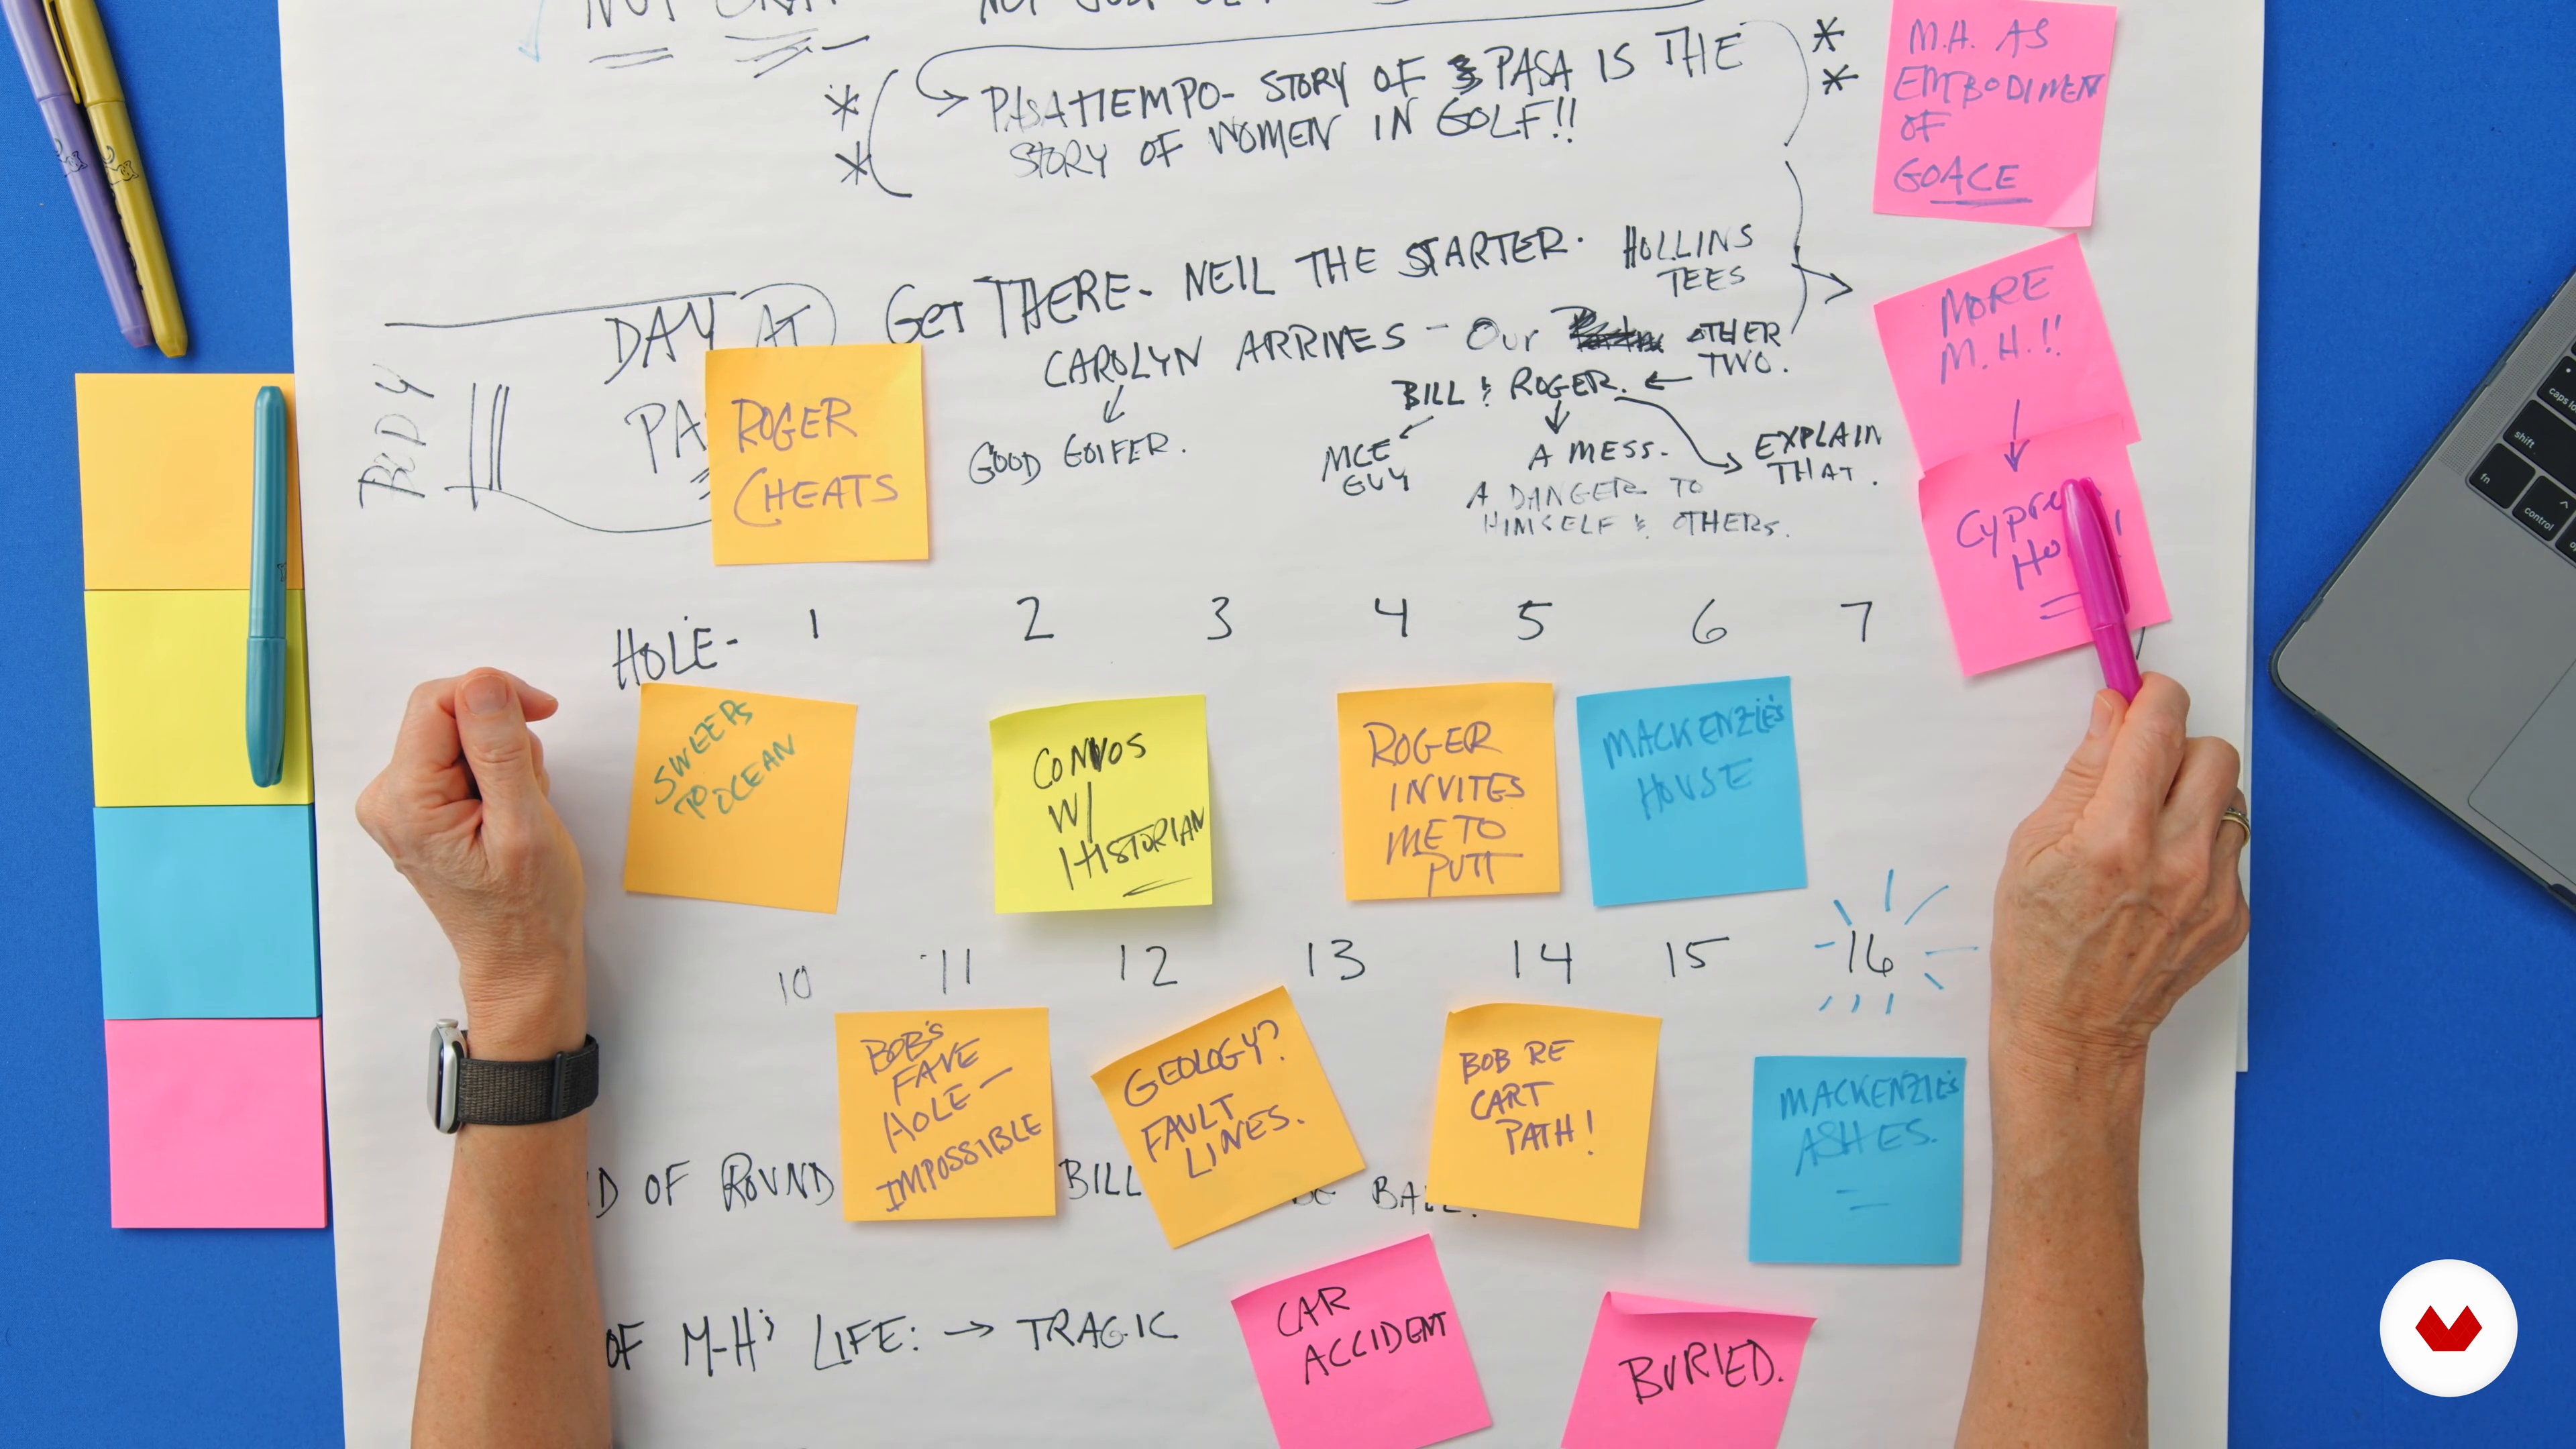 PASATIEMPO- STORY OF PASA IS THE
STORY OF WOMEN IN GOLF!!
M.H. AS
EMBODIMENT
OF
GOACE
GET THERE- NEIL THE STARTER.
HOLLINS
TEES
MORE
M.H.!!
BODY
DAY AT
PA
CAROLYN ARRIVES - OUR OTHER
TWO.
BILL & ROGER.
GOOD GOLFER.
NICE
GUY
A MESS.
A DANGER TO
HIMSELF & OTHERS.
EXPLAIN
THAT.
ROGER
CHEATS
HOLE- 1 2 3 4 5 6 7
SWEEPS
TO OCEAN
CONVOS
W/
HISTORIAN
ROGER
INVITES
ME TO
PUTT
MACKENZIE'S
HOUSE
10 11 12 13 14 15 16
BOB'S
FAVE
HOLE-
IMPOSSIBLE
GEOLOGY?
FAULT
LINES.
BOB RE
CART
PATH!
MACKENZIE'S
ASHES.
OF ROUND BILL
OF M-H'S LIFE: → TRAGIC
CAR
ACCIDENT
BURIED.
caps
shift
fn
control